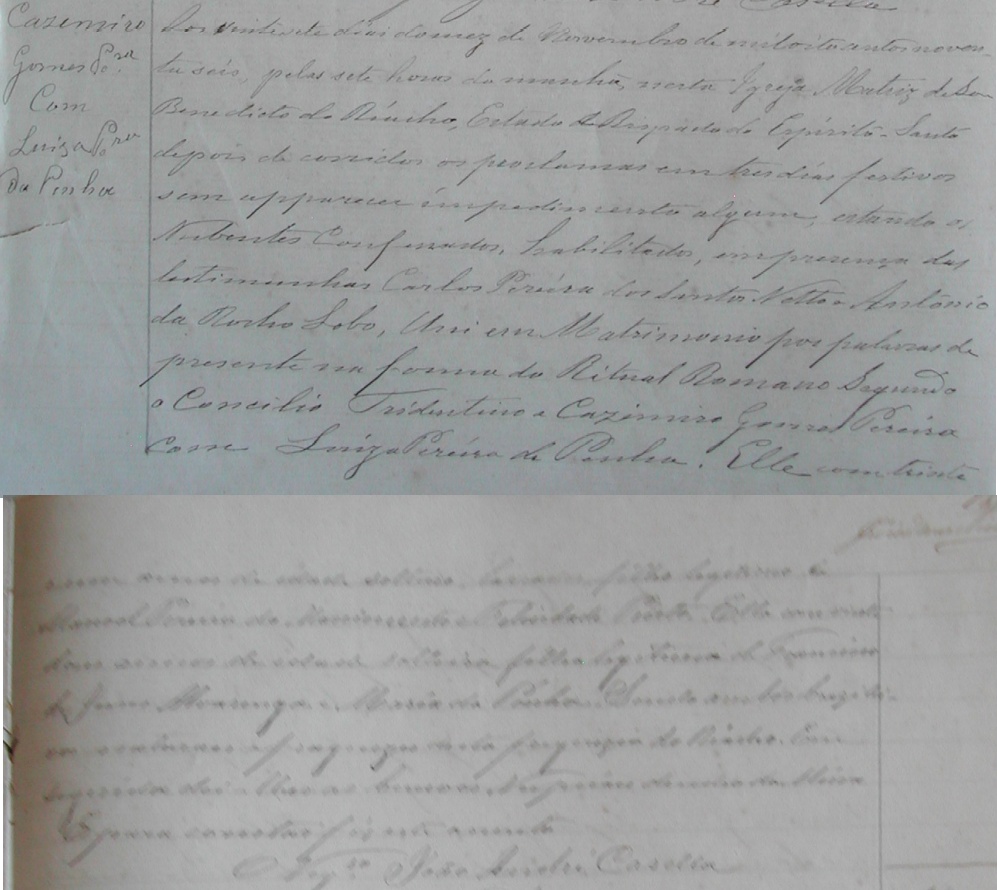 Cazemiro
Gomes Pra
Com
Luiza Pra
da Penha
Aos vinte sete dias do mez de Novembro de mil oito centos noven-
ta seis, pelas sete horas da manha, nesta Igreja Matriz de São
Benedicto do Riacho, Estado e Bispado do Espirito-Santo
depois de corridos os proclamas em tres dias festivos
sem apparecer impedimento algum, estando os
Nubentes Confessados, habilitados, em presença das
testimunhas Carlos Pereira dos Santos Netto e Antonio
da Rocha Lobo, Uni em Matrimonio por palavras de
presente na forma do Ritual Romano Segundo
o Concilio Tridentino a Cazimiro Gomes Pereira
com Luiza Pereira da Penha. Elle com trinta
annos de edade solteiro, lavrador, filho legitimo de
Manoel Pereira do Nascimento e Felicidade Ella com
annos de edade solteira filha legitima de Francisco
de Alvarenga e Maria da Penha. Sendo ambos brazilei-
ros naturaes e freguezes desta freguezia do Riacho. Em
seguida dei-lhes as bençãos Nupciaes dentro da Missa
E para constar fiz este assento
João André Casella